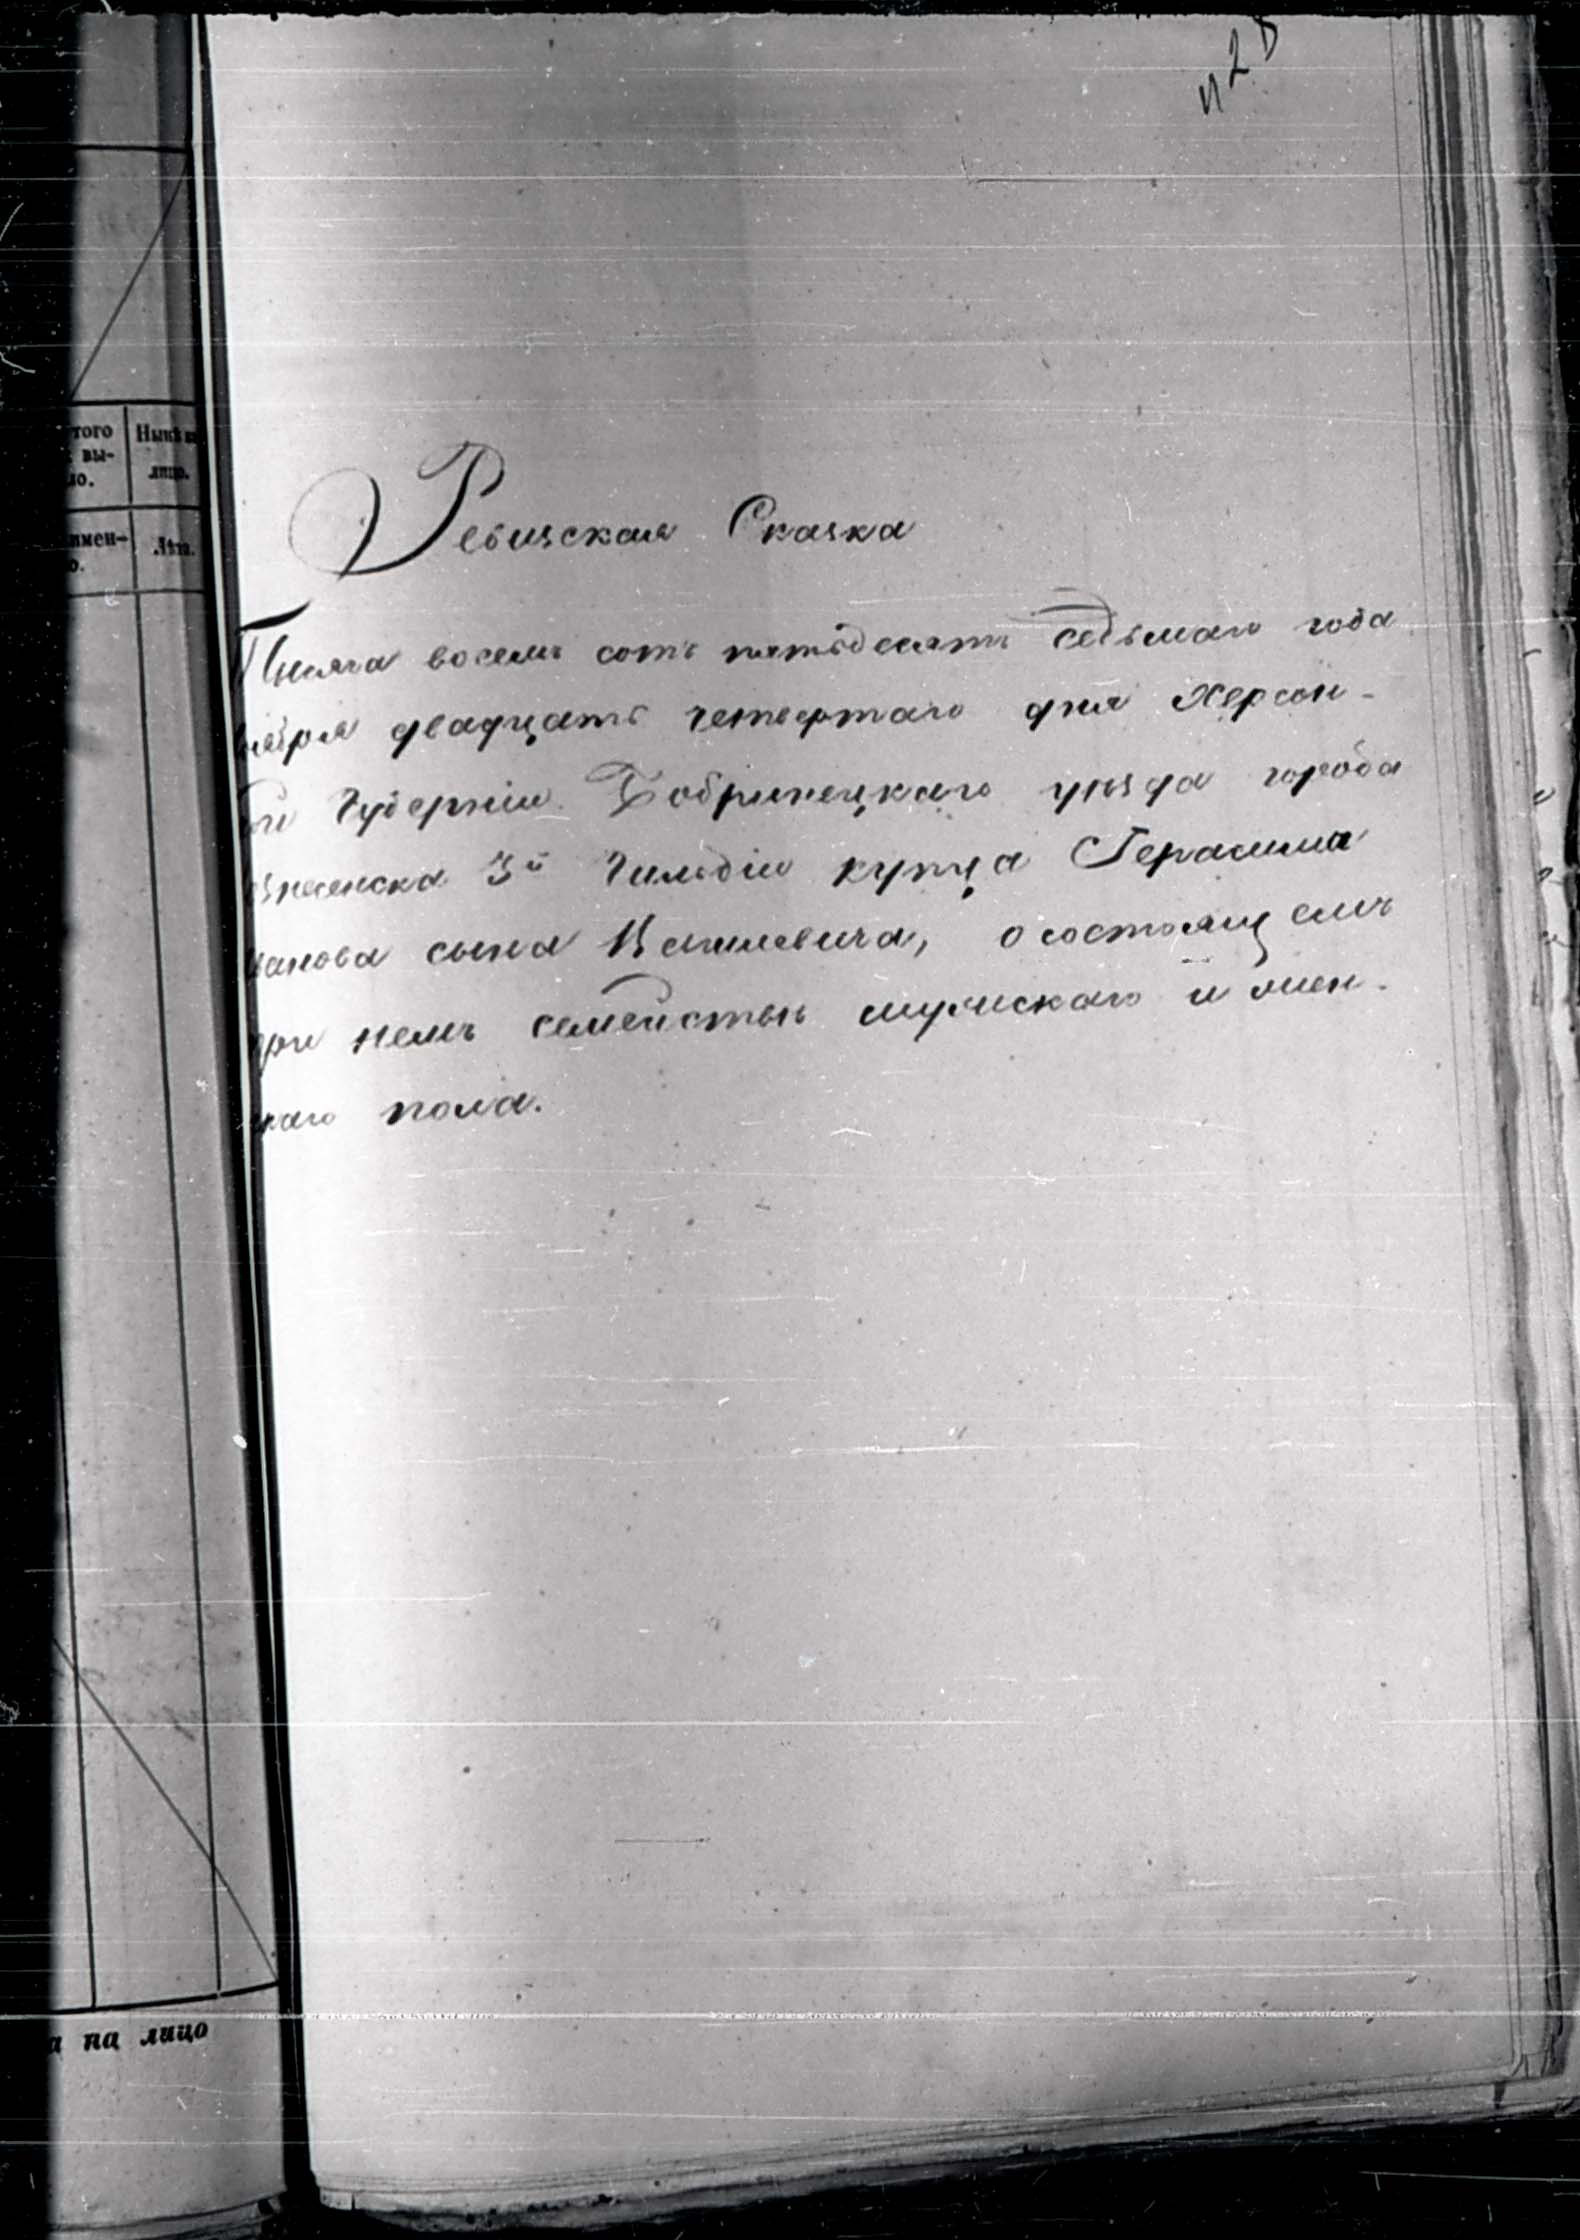 428
того
вы-
ло.
Нынѣ на
лицо.
имен-
о.
Лѣта.
Ревизская Сказка
Тысяча восемь сотъ пятьдесятъ седьмаго года
ября двадцать четвертаго дня Херсон-
ой Губерніи Бобринецкаго уѣзда города
знесенска 3й Гильдіи купца Герасима
ванова сына, о состоящемъ
при немъ семействѣ мужскаго и жен-
скаго пола.
а на лицо